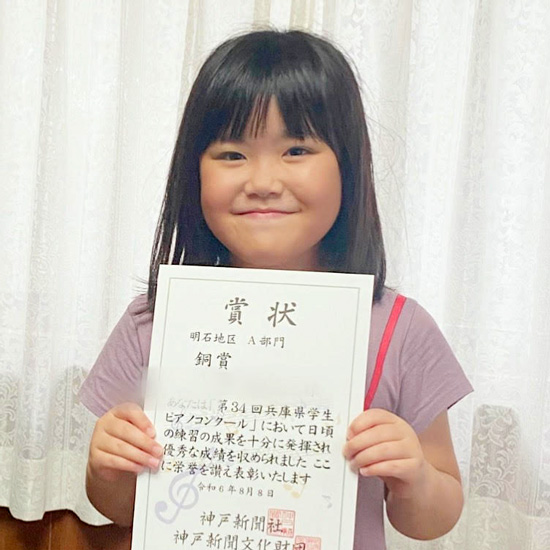 賞状
明石地区 A部門
銅賞
あなたは「第34回兵庫県学生
ピアノコンクール」において日頃
の練習の成果を十分に発揮され
優秀な成績を収められました ここ
に栄誉を讃え表彰いたします
令和6年8月8日
神戸新聞社
神戸新聞文化財団